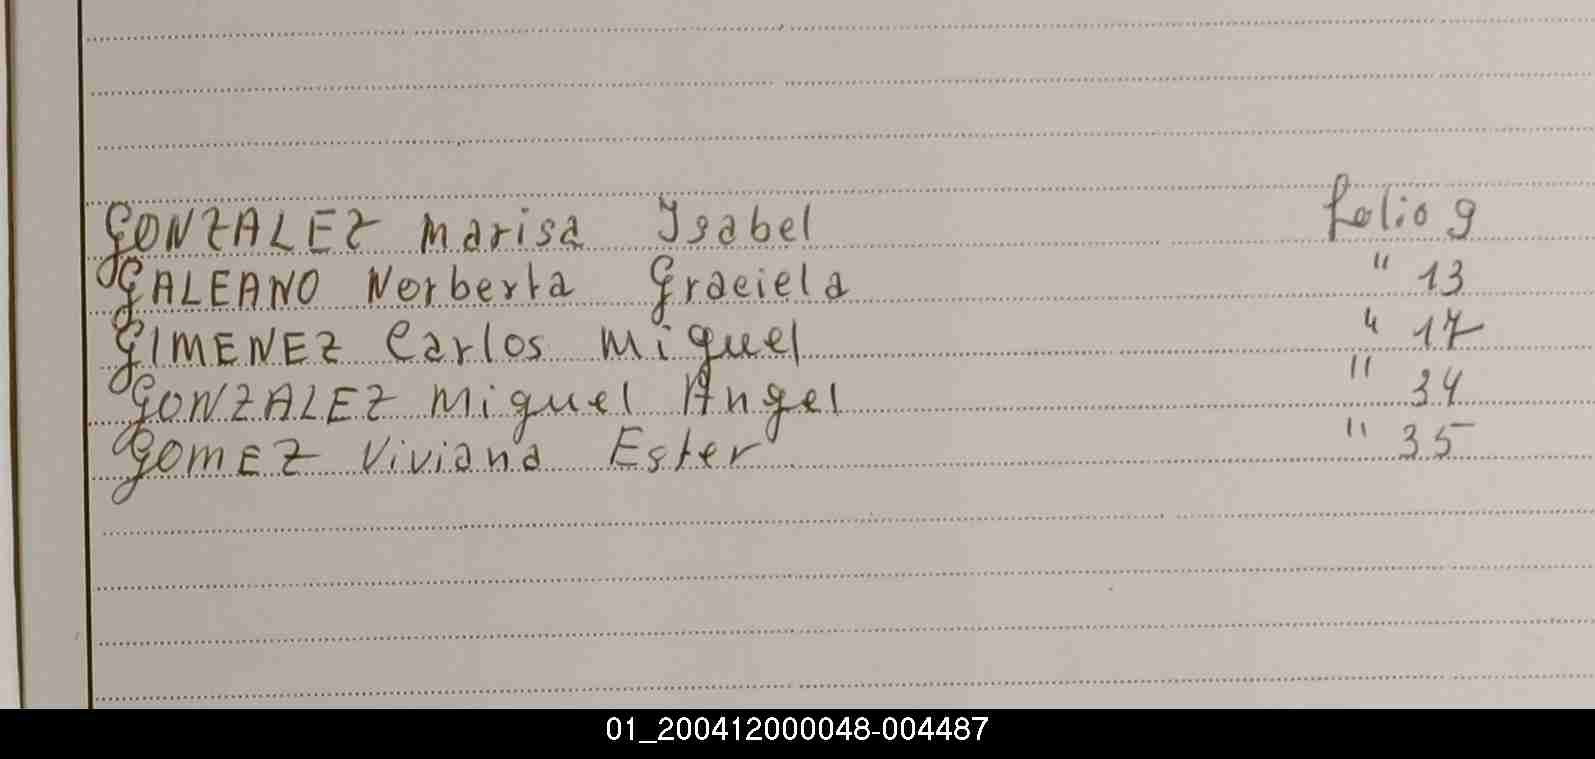 GONZALEZ Marisa Ysabel folio 9
GALEANO Norberta Graciela " 13
GIMENEZ Carlos Miguel " 17
GONZALEZ Miguel Angel " 34
GOMEZ Viviana Ester " 35
01_200412000048-004487